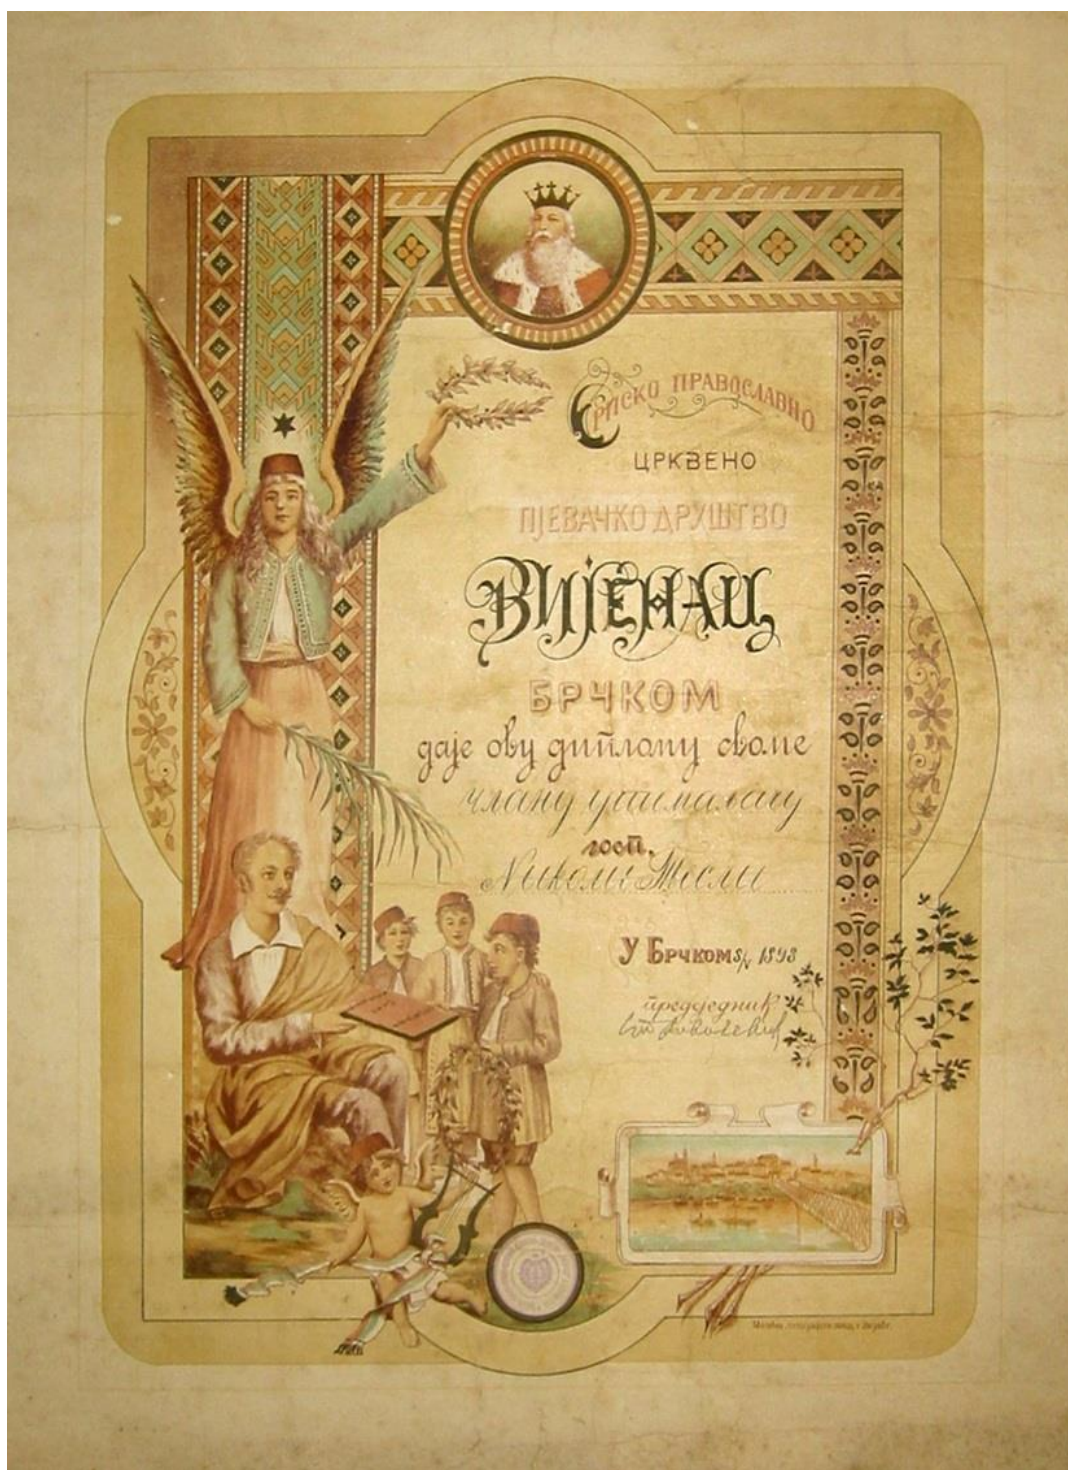 Српско православно
црквено
пјевачко друштво
Вијенац
Брчком
даје ову диплому своме
члану утемељачу
госп.
Николи Тесли
У Брчком 1893
предсједник